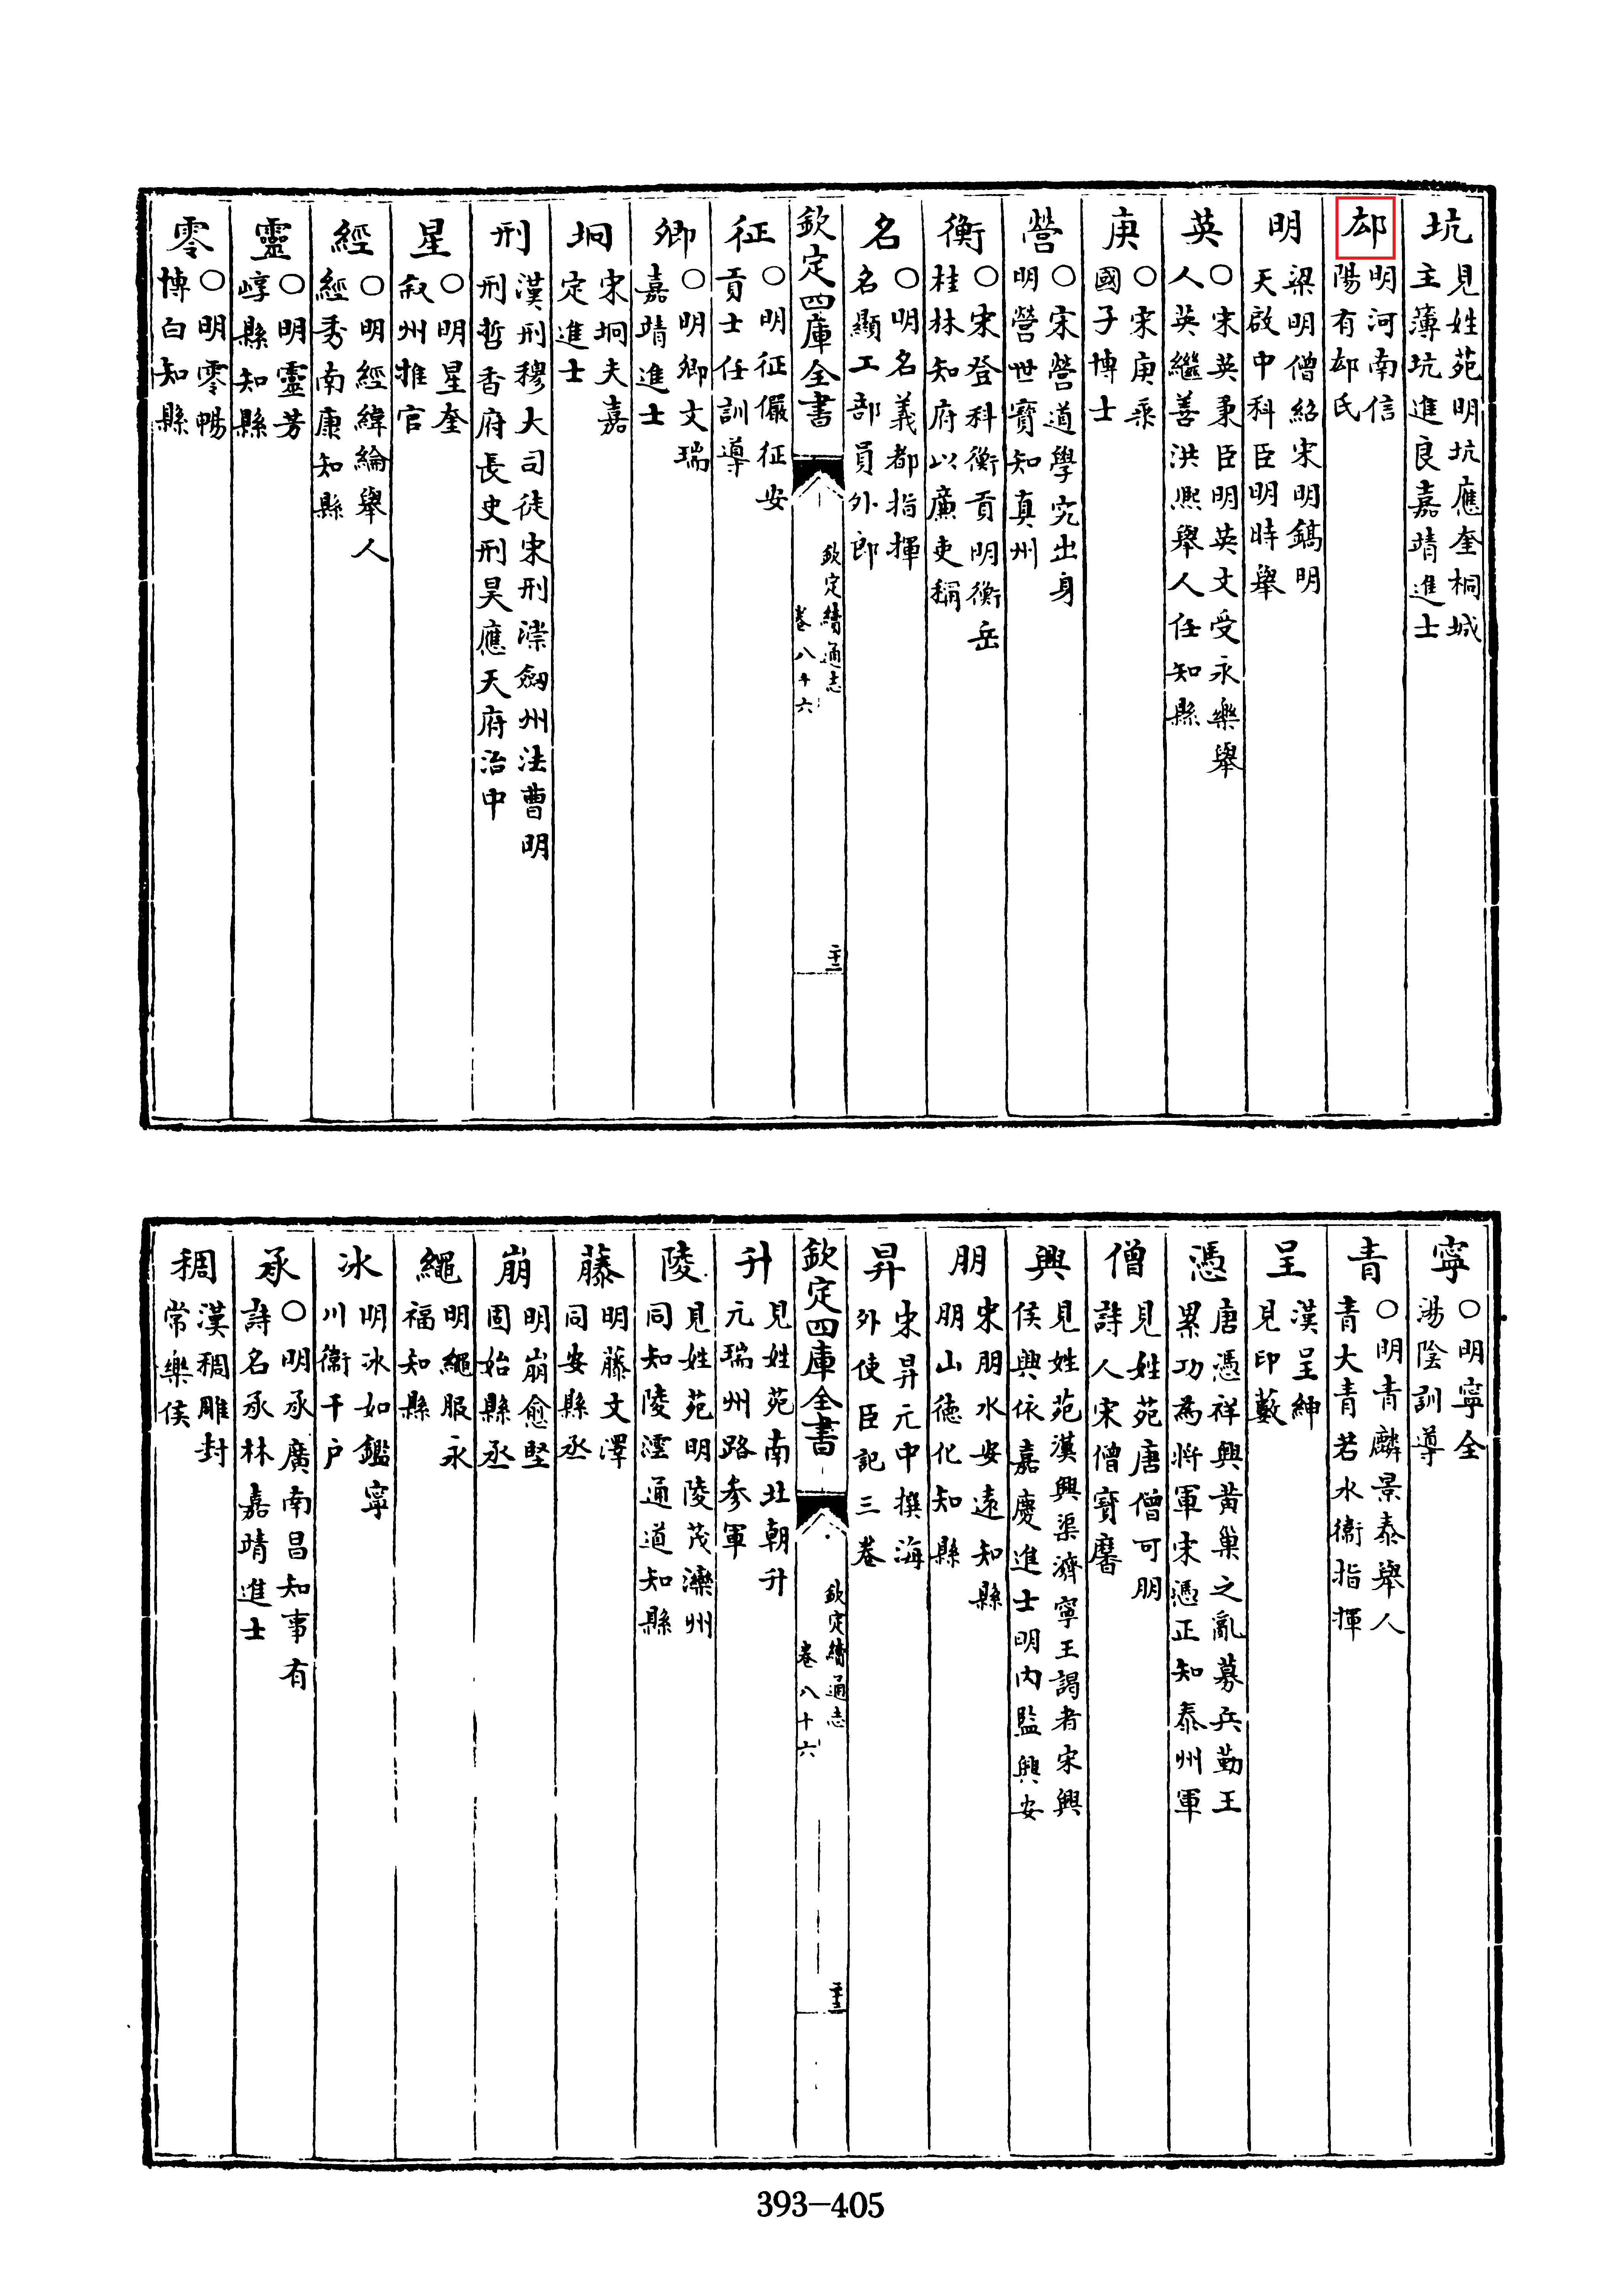 坑
見姓苑明坑應奎桐城
主薄坑進良嘉靖進士
明河南信
陽有氏
明
梁明僧紹宋明鎬明
天啟中科臣明時舉
英
○宋英秉臣明英文受永樂舉
人英繼善洪熙舉人任知縣
庚
○宋庚桒
國子博士
營
○宋營道學究出身
明營世寳知真州
衡
○宋登科衡貢明衡岳
桂林知府以廉吏稱
名
○明名義都指揮
名顯工部員外郎
欽定四庫全書
欽定續通志
卷八十六
二十二
征
○明征儼征安
貢士任訓導
卿
○明卿文瑞
嘉靖進士
坰
宋坰夫嘉
定進士
刑
漢刑穆大司徒宋刑漴劔州法曹明
刑哲香府長史刑昊應天府治中
星
○明星奎
叙州推官
經
○明經緯綸舉人
經秀南康知縣
靈
○明靈芳
崞縣知縣
零
○明零暢
博白知縣
寧
○明寧全
湯陰訓導
青
○明青麟景泰舉人
青大青若水衞指揮
呈
漢呈紳
見印藪
憑
唐憑祥興黄巢之亂募兵勤王
累功為將軍宋憑正知泰州軍
僧
見姓苑唐僧可朋
詩人宋僧寳麿
興
見姓苑漢興渠濟寧王謁者宋興
侯興依嘉慶進士明内監興安
朋
宋朋水安遠知縣
朋山德化知縣
昇
宋昇元中撰海
外使臣記三卷
欽定四庫全書
欽定續通志
卷八十六
二十三
升
見姓苑南北朝升
元瑞州路參軍
陵
見姓苑明陵茂灤州
同知陵澐通道知縣
藤
明藤文澤
同安縣丞
崩
明崩愈堅
固始縣丞
繩
明繩服永
福知縣
冰
明冰如鑑寧
川衞千户
承
○明承廣南昌知事有
詩名承林嘉靖進士
稠
漢稠雕封
常樂侯
393-405